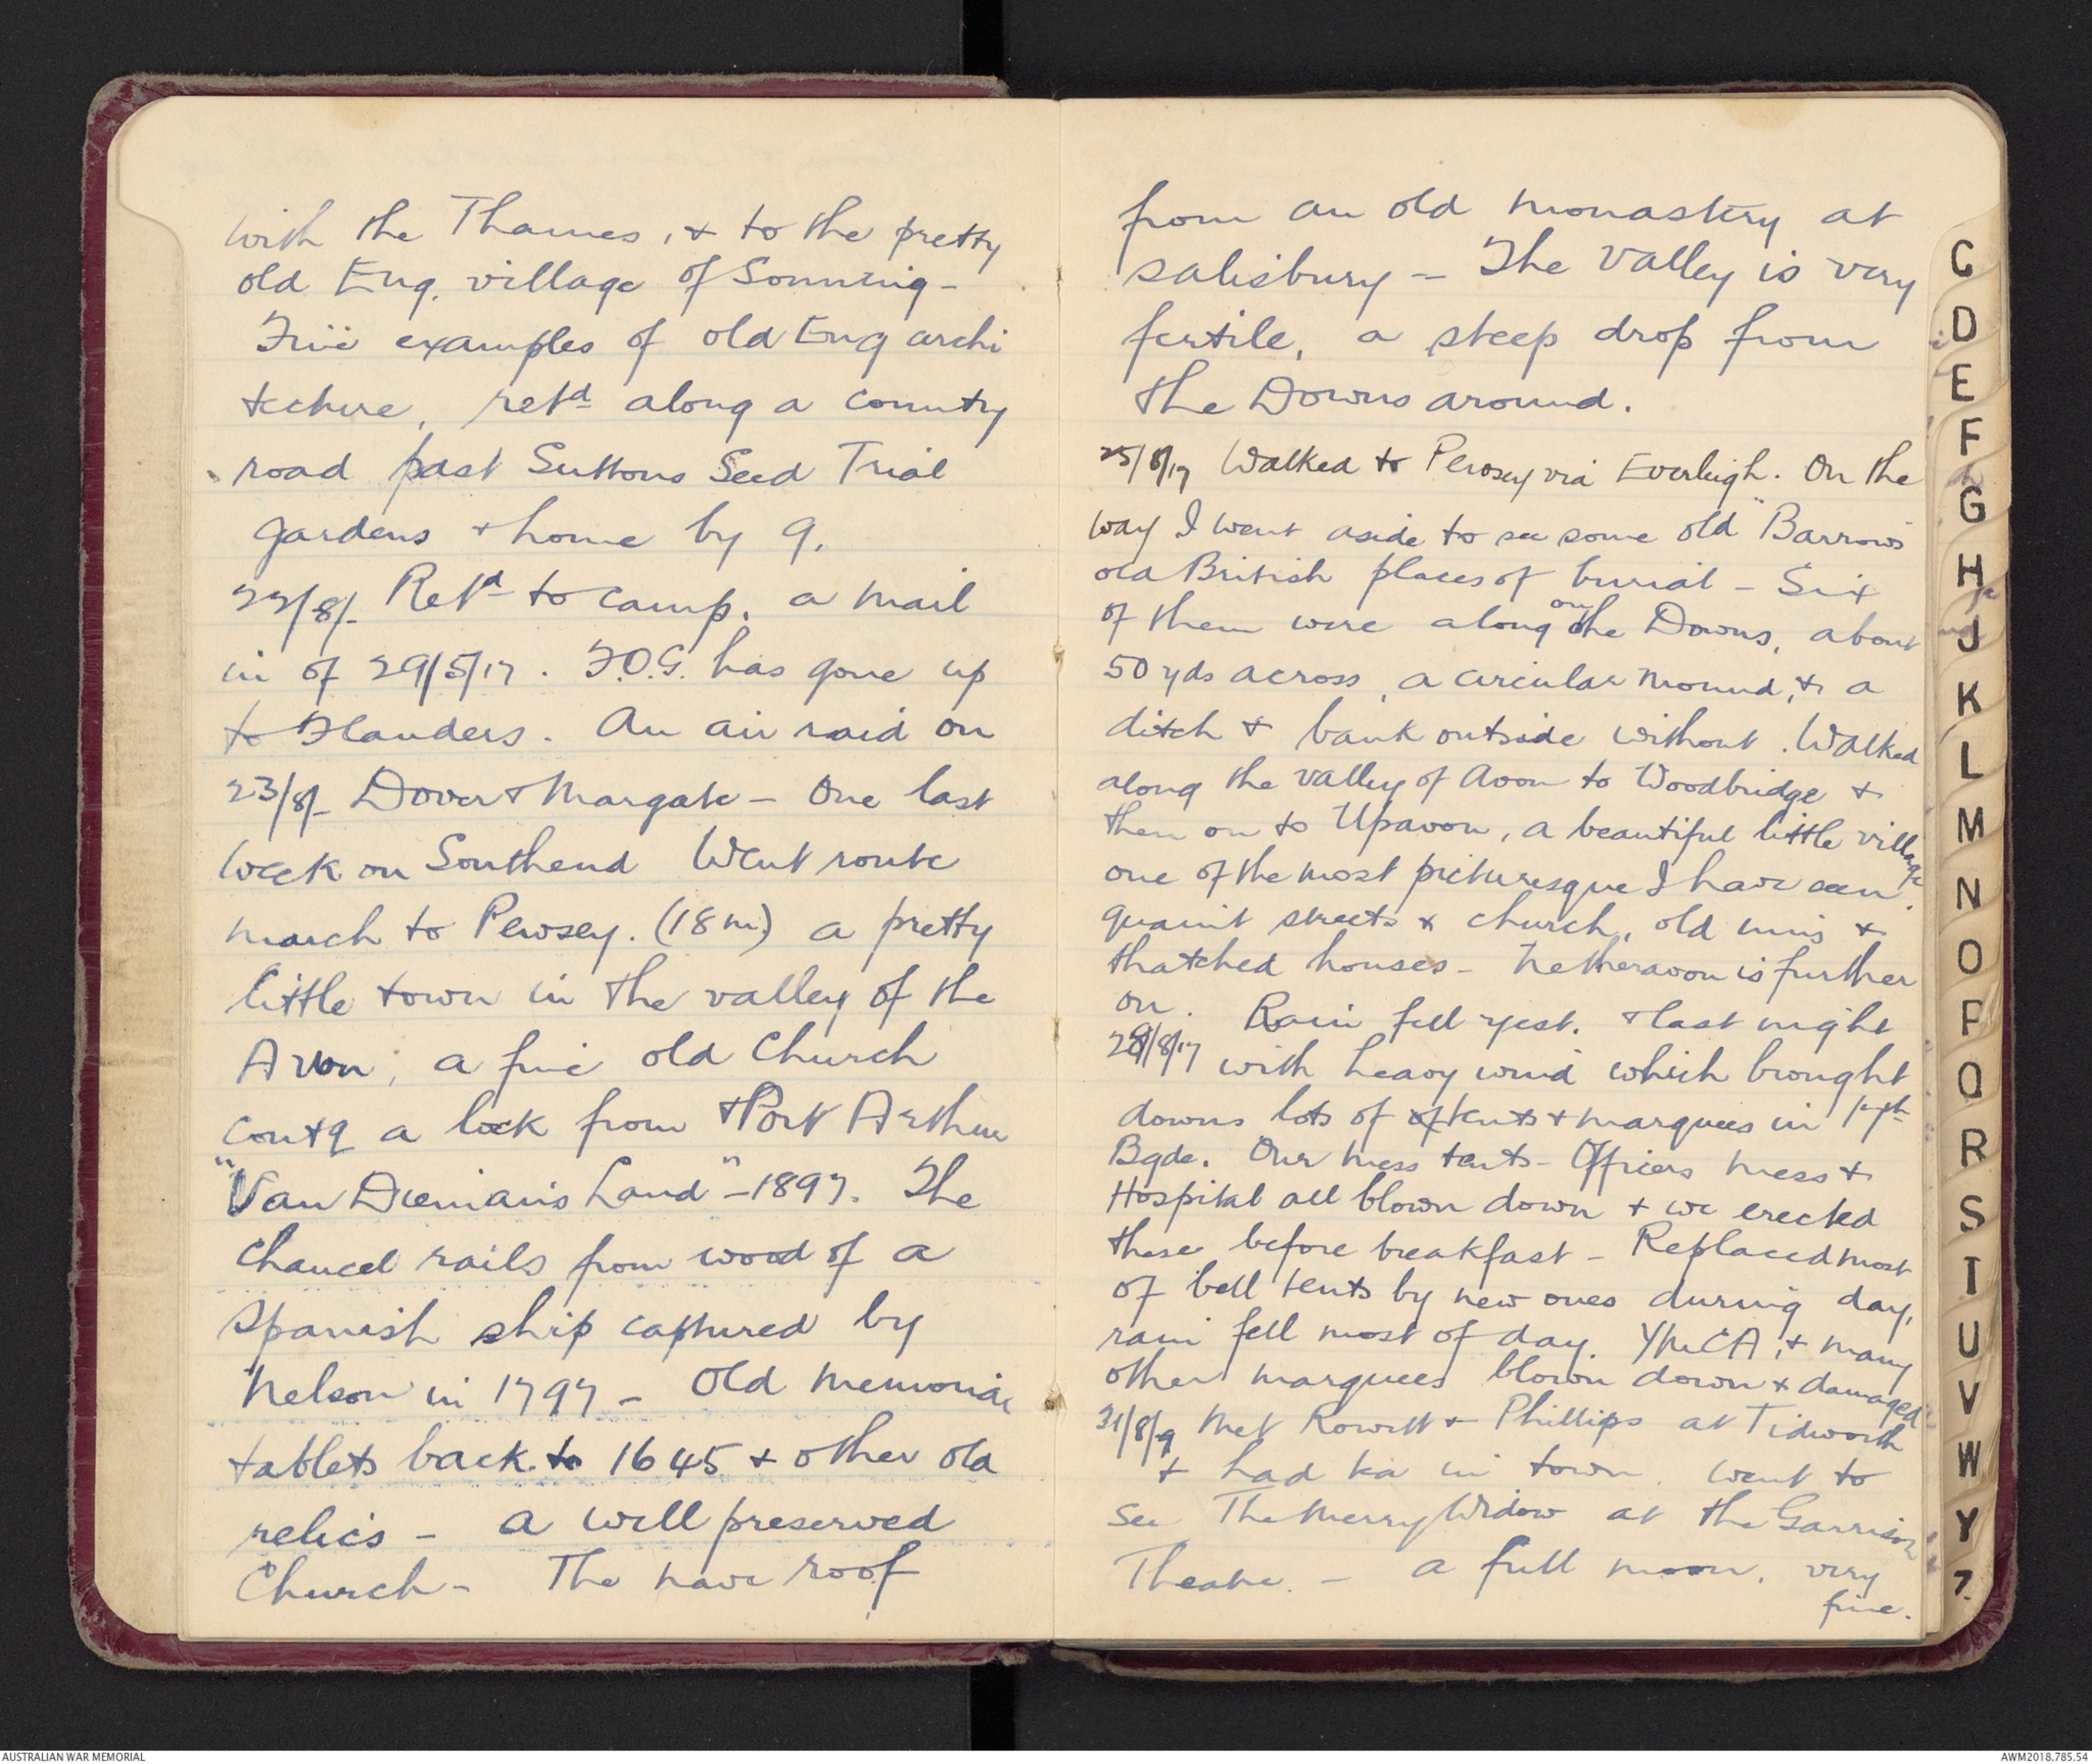 with the Thames, & to the pretty
old Eng. village of Sonning -
Fine examples of old Eng archi
tecture, retd along a country
road past Suttons Seed Trial
gardens & home by 9.
22/8/- Retd to camp. a mail
in of 29/5/17. F.O.G. has gone up
to Flanders. An air raid on
23/8/- Dover & Margate - One last
week on Southend Went route
march to Pewsey. (18 m) a pretty
little town in the valley of the
Avon, a fine old Church
contg a lock from Port Arthur
"Van Diemans Land" - 1897. The
chancel rails from wood of a
Spanish ship captured by
Nelson in 1797 - Old memorial
tablets back to 1645 & other old
relics - a well preserved
Church - The nave roof
from an old monastery at
Salisbury - The valley is very
fertile, a steep drop from
the Downs around.
25/8/17 Walked to Pewsey via Everleigh. On the
way I went aside to see some old "Barrows
old British places of burial - Six
of them were along on the Downs, about
50 yds across, a circular mound, & a
ditch & bank outside without. Walked
along the valley of Avon to Woodbridge &
then on to Upavon, a beautiful little village
one of the most picturesque I have seen.
quaint streets & church, old inns &
thatched houses - Netheravon is further
on. Rain fell yest. & last night
28/8/17 with heavy wind which brought
downs lots of tents & marquees in
Bgde. Our mess tents - Officers mess &
Hospital all blown down & we erected
these before breakfast - Replaced most
of bell tents by new ones during day,
rain fell most of day. YMCA, & many
other marquees blown down & damaged
31/8/17 Met Rowett & Phillips at Tidworth
& had tea in town. went to
see The Merry Widow at the Garrison
Theatre. - a full moon. very
fine.
C
D
E
F
G
H
J
K
L
M
N
O
P
Q
R
S
T
U
V
W
Y
Z
AUSTRALIAN WAR MEMORIAL
AWM2018.785.54